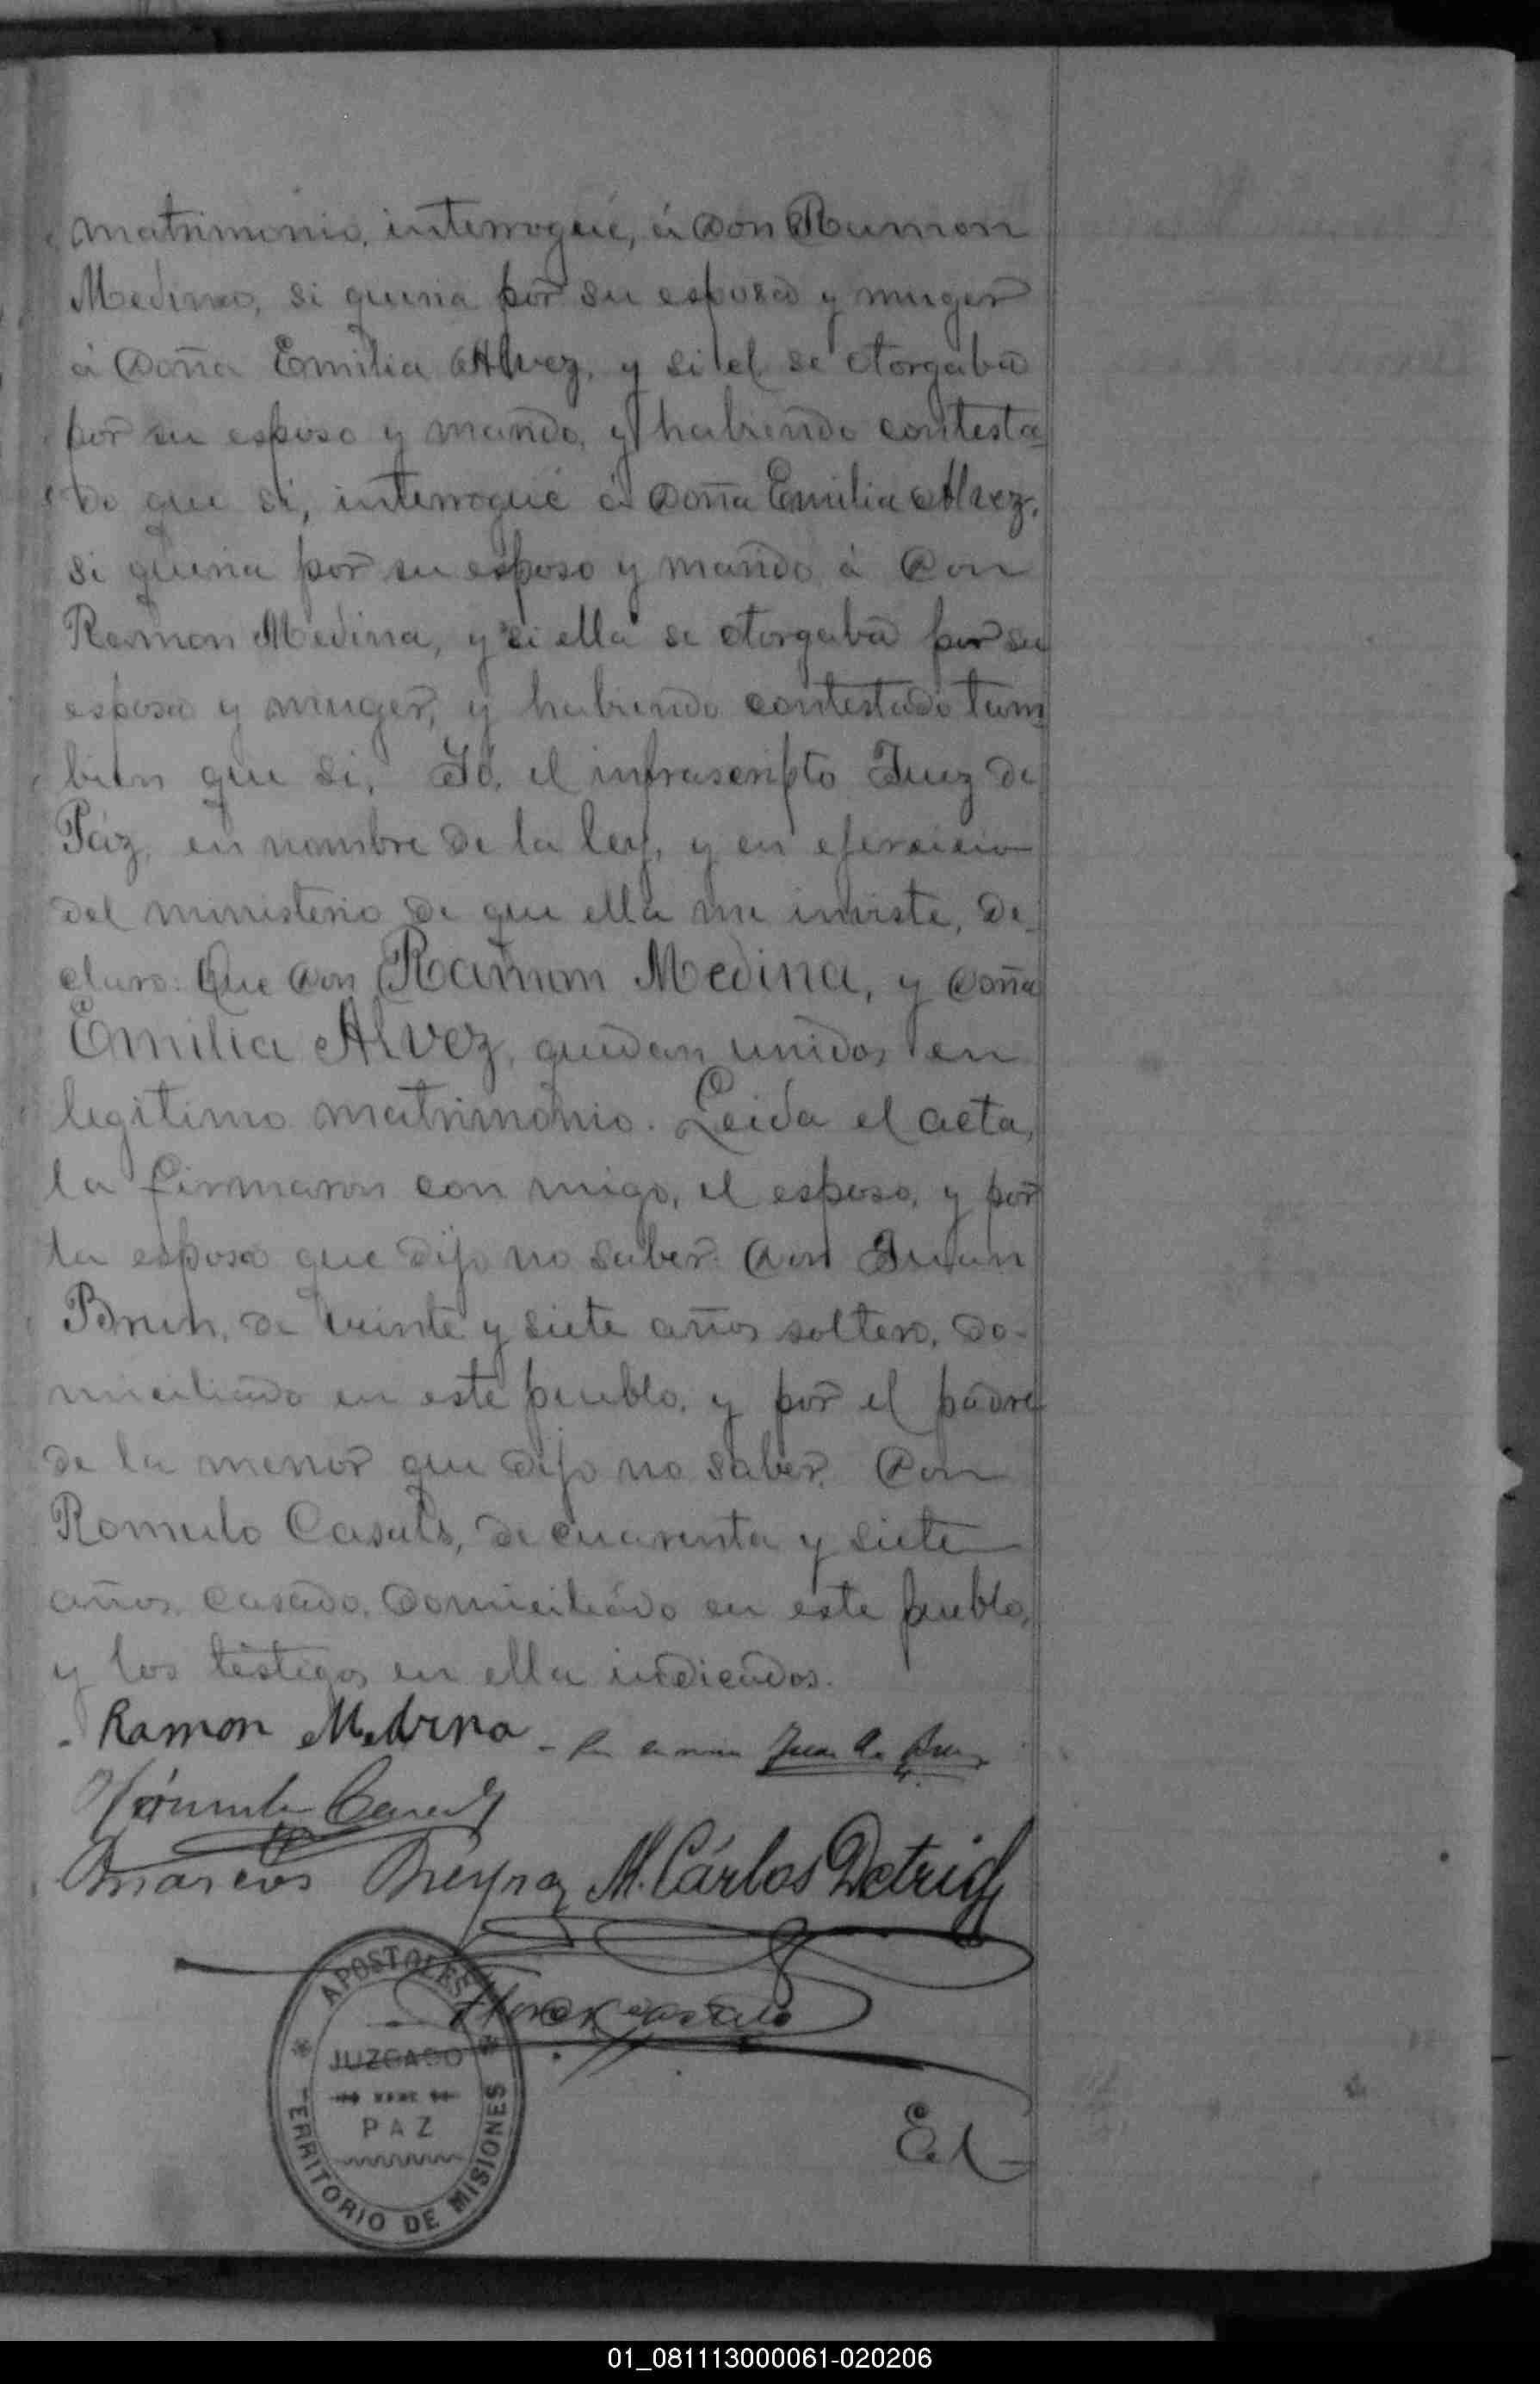 matrimonio, interrogué, á Don Ramon
Medina, si queria por su esposa y muger
á Doña Emilia Alvez, y si el se otorgaba
por su esposo y marido, y habiendo contesta-
do que si, interrogué á Doña Emilia Alvez,
si queria por su esposo y marido á Don
Ramon Medina, y si ella se otorgaba por su
esposa y muger, y habiendo contestado tam-
bien que si, Yó, el infrascripto Juez de
Páz, en nombre de la ley, y en ejercicio
del ministerio de que ella me inviste, de-
claro: Que Don Ramon Medina, y Doña
Emilia Alvez, quedan unidos en
legitimo matrimonio. Leida el acta,
la firmaron con migo, el esposo, y por
la esposa que dijo no saber Don Juan
Brun, de veinte y siete años soltero, do-
miciliado en este pueblo, y por el padre
de la menor que dijo no saber, Don
Romulo Casals, de cuarenta y siete
años, casado, domiciliado en este pueblo,
y los testigos en ella indicados.
Ramon Medina
Rómulo Casals
Marcos M. Cárlos Detrig
APOSTOLES
JUZGADO
PAZ
TERRITORIO DE MISIONES
El
01_081113000061-020206